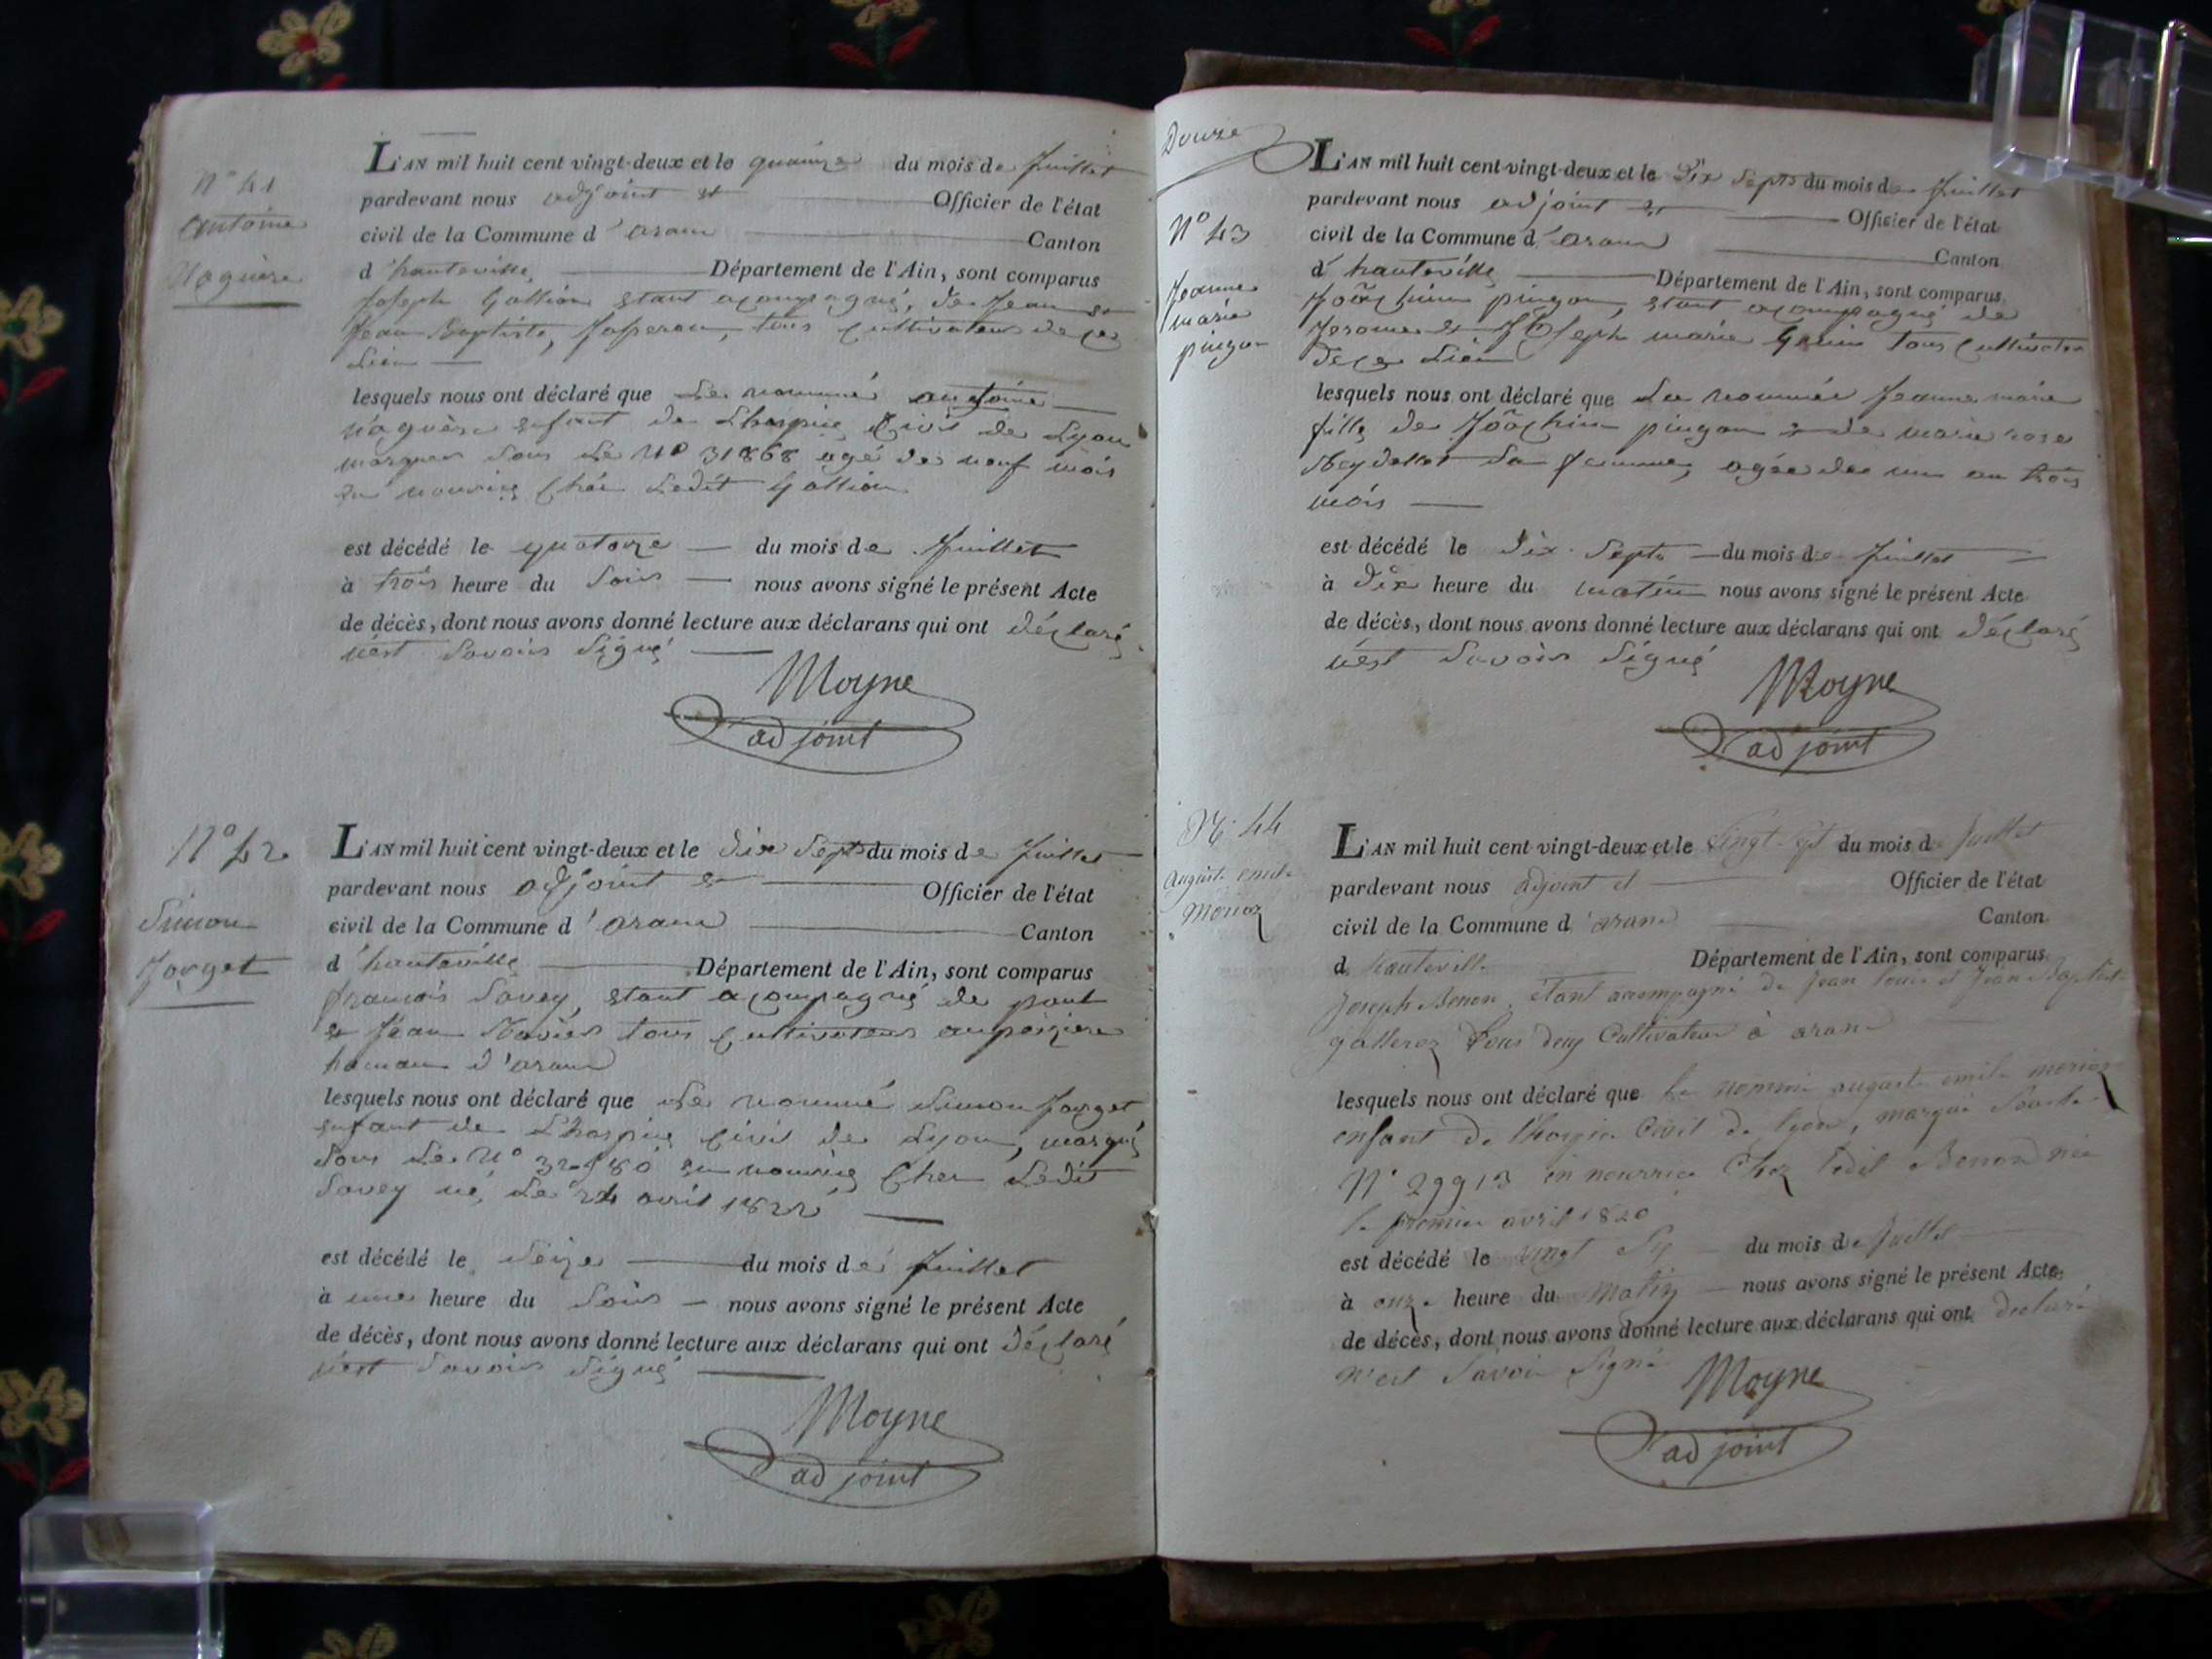 N° 41
antoine
Naguère
L'AN mil huit cent vingt-deux et le quinze du mois de Juillet
pardevant nous adjoint et Officier de l'état
civil de la Commune d'aranc Canton
d'hauteville Département de l'Ain, sont comparus
Joseph Gallion etant acompagné, de Jean et
Jean Baptiste, tous cultivateur de ce
Lieu
lesquels nous ont déclaré que Le nommé antoine
naguère enfant de Lhospice Civil de Lyon
marquer sous Le N° 31868 agé de neuf mois
en nourice Ledit Gallion
est décédé le quatorze du mois de Juillet
à trois heure du Soir nous avons signé le présent Acte
de décès, dont nous avons donné lecture aux déclarans qui ont déclaré
nest Savoir Signé
Moyne
adjoint
N° 42
Simon
Jorget
L'AN mil huit cent vingt-deux et le dix Sept du mois de Juillet
pardevant nous adjoint et Officier de l'état
civil de la Commune d'aranc Canton
d'hauteville Département de l'Ain, sont comparus
francois Savey, etant acompagné de
et Jean tous cultivateurs
hameau d'aranc
lesquels nous ont déclaré que Le nommé Simon Jorget
enfant de Lhospice Civil de Lyon, marqué
Sous Le N° en nourice Cher Ledit
Savey né, Le 24 avril 1822
est décédé le Seize du mois de Juillet
à une heure du Soir nous avons signé le présent Acte
de décès, dont nous avons donné lecture aux déclarans qui ont déclaré
nest Savoir Signé
Moyne
adjoint
Douze
N° 43
Jeanne
marie
pingon
L'AN mil huit cent vingt-deux et le Dix Sept du mois de Juillet
pardevant nous adjoint et Officier de l'état
civil de la Commune d'aranc Canton
d'hauteville Département de l'Ain, sont comparus
Jôachim pingon, etant acompagné de
Jerome et Joseph marie tous cultivateur
de ce Lieu
lesquels nous ont déclaré que La nommée Jeanne marie
fille de Jôachim pingon et de marie rose
Sa femme, agée de un an trois
mois
est décédé le dix Sept du mois de Juillet
à dix heure du matin nous avons signé le présent Acte
de décès, dont nous avons donné lecture aux déclarans qui ont déclaré
nest Savoir Signé
Moyne
adjoint
N° 44
Auguste emile
L'AN mil huit cent vingt-deux et le Vingt Sept du mois de Juillet
pardevant nous adjoint et Officier de l'état
civil de la Commune d'aranc Canton
d'hauteville Département de l'Ain, sont comparus
Joseph Benon, étant accompagné de Jean louis et Jean Baptiste
tous deux Cultivateur à aranc
lesquels nous ont déclaré que le nommé auguste emile
enfant de l'hospice Civil de lyon, marqué Sous le
N° 29913 en nourrice Chez ledit Benon né
le premier avril 1820
est décédé le vingt Six du mois de Juillet
à onze heure du matin nous avons signé le présent Acte
de décès, dont nous avons donné lecture aux déclarans qui ont declaré
n'est Savoir Signé
Moyne
adjoint